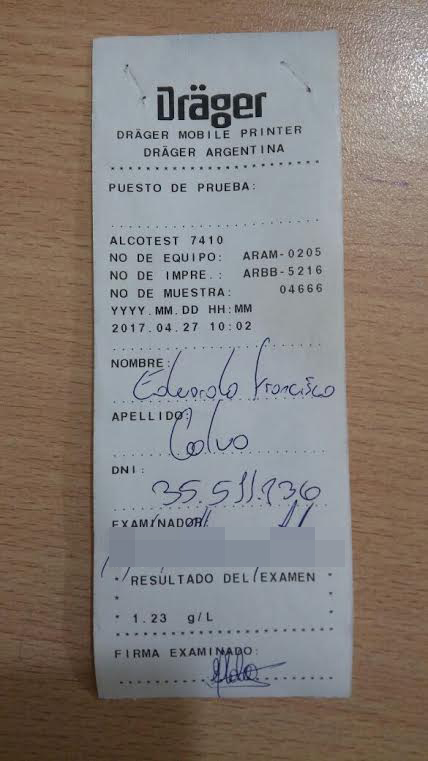 Dräger
DRÄGER MOBILE PRINTER
DRÄGER ARGENTINA
PUESTO DE PRUEBA:
ALCOTEST 7410
NO DE EQUIPO: ARAM-0205
NO DE IMPRE.: ARBB-5216
NO DE MUESTRA: 04666
YYYY.MM.DD HH:MM
2017.04.27 10:02
NOMBRE:
Eduardo Francisco
APELLIDO:
Calvo
DNI:
35.511.736
EXAMINADOR:
* RESULTADO DEL EXAMEN *
* *
* 1.23 g/L *
FIRMA EXAMINADO: